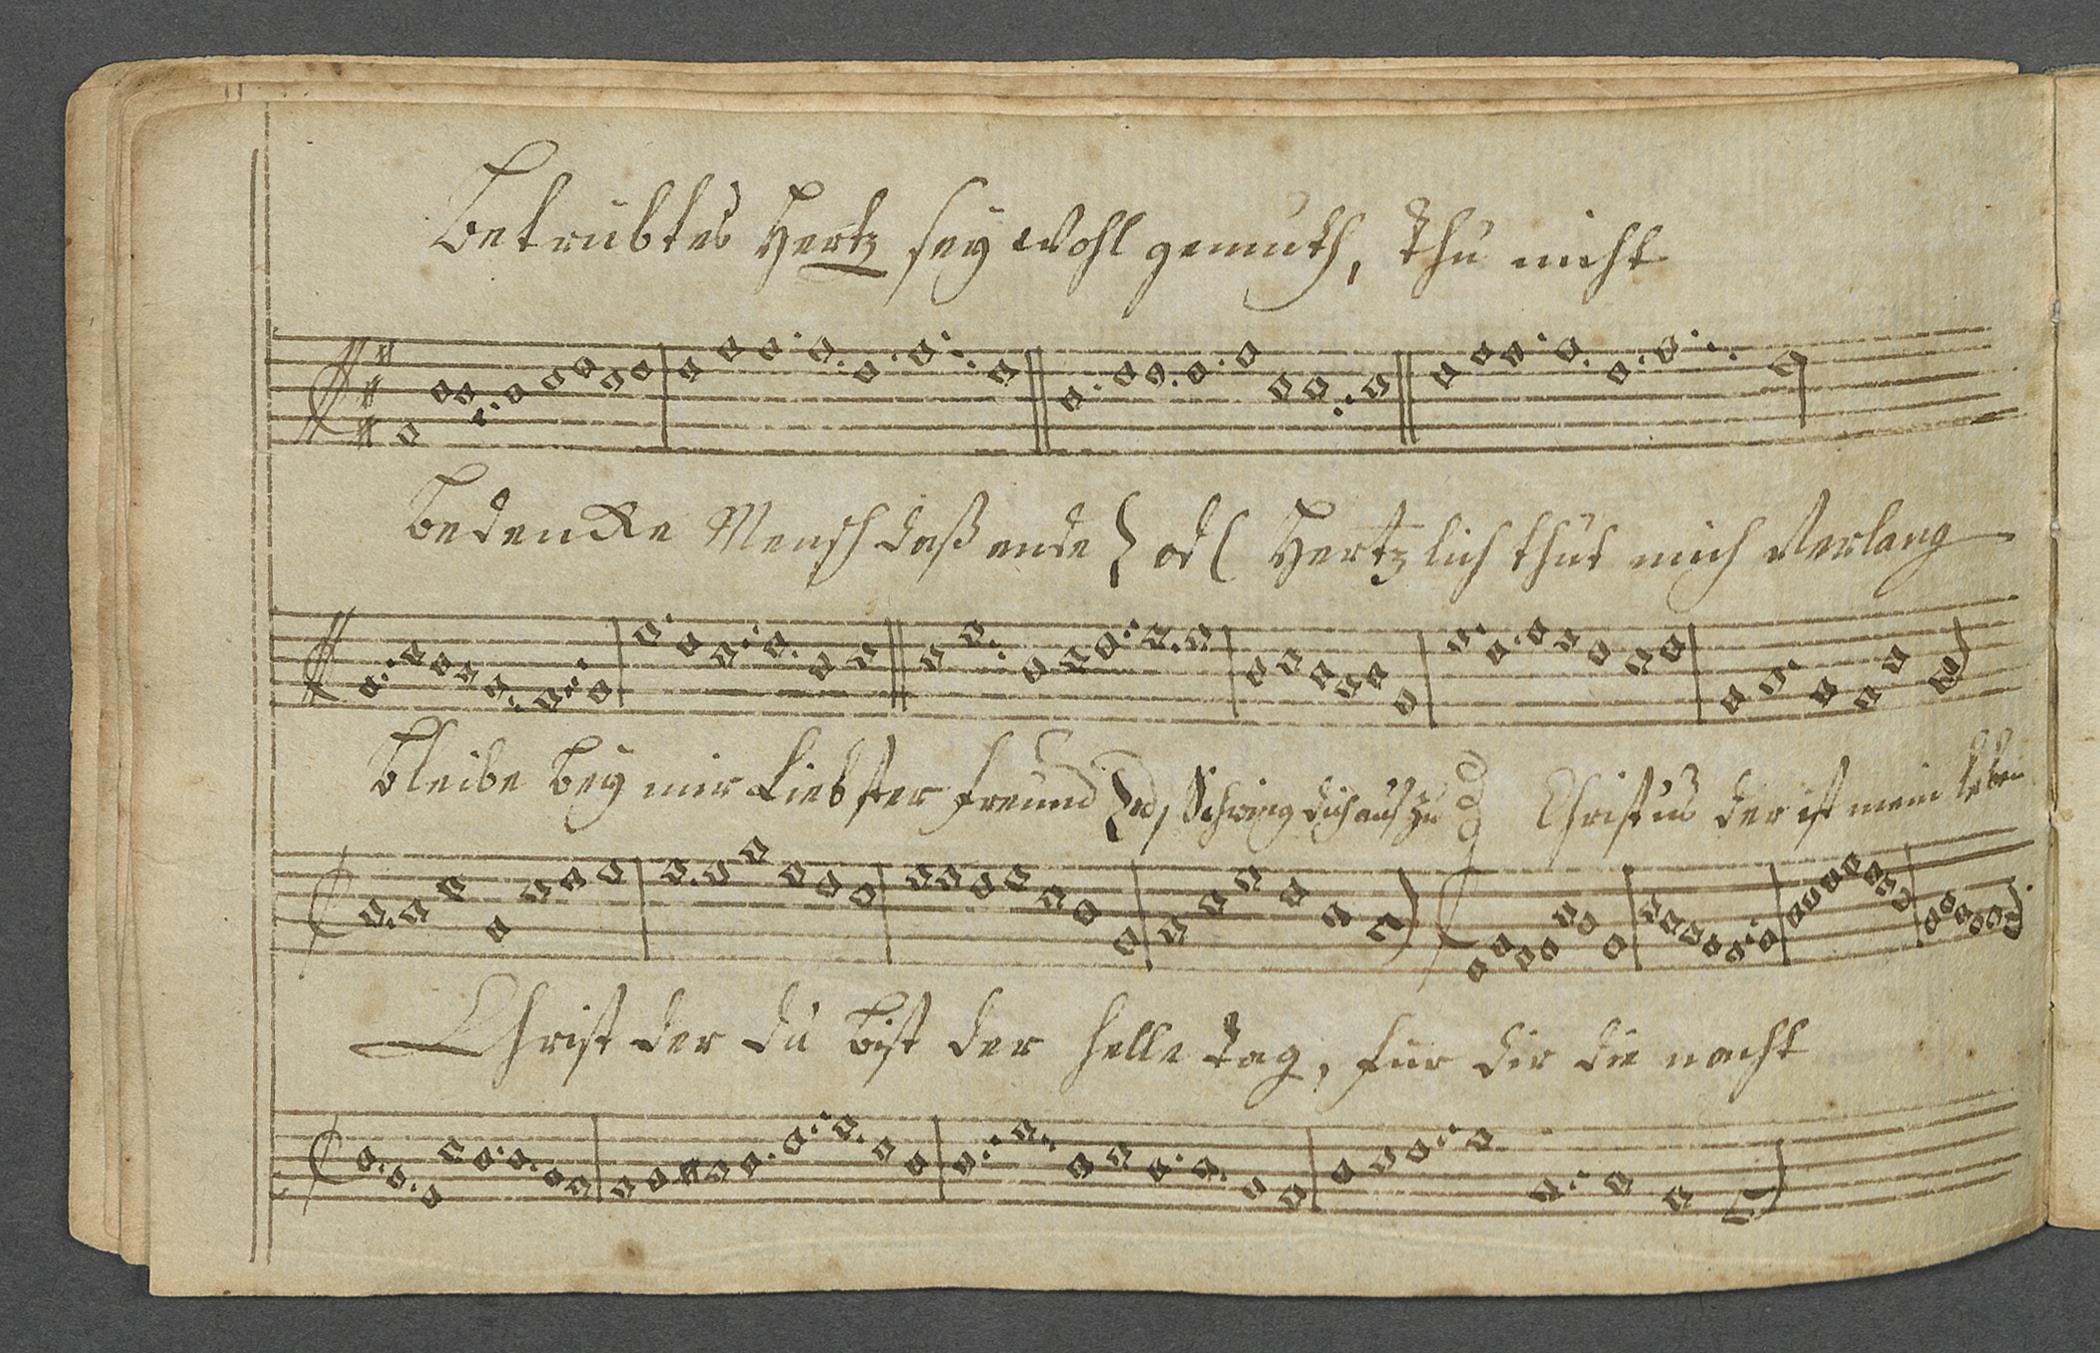 Betrübtes Hertz sey wohl gemuth, thu nicht
Bedencke Mensch daß ende } od ( Hertzlich thut mich Verlang
Bleibe bey mir Liebster freund } od, Schwing dich auf zu Christus der ist mein leben
Christ der du bist der helle tag, für dir die nacht